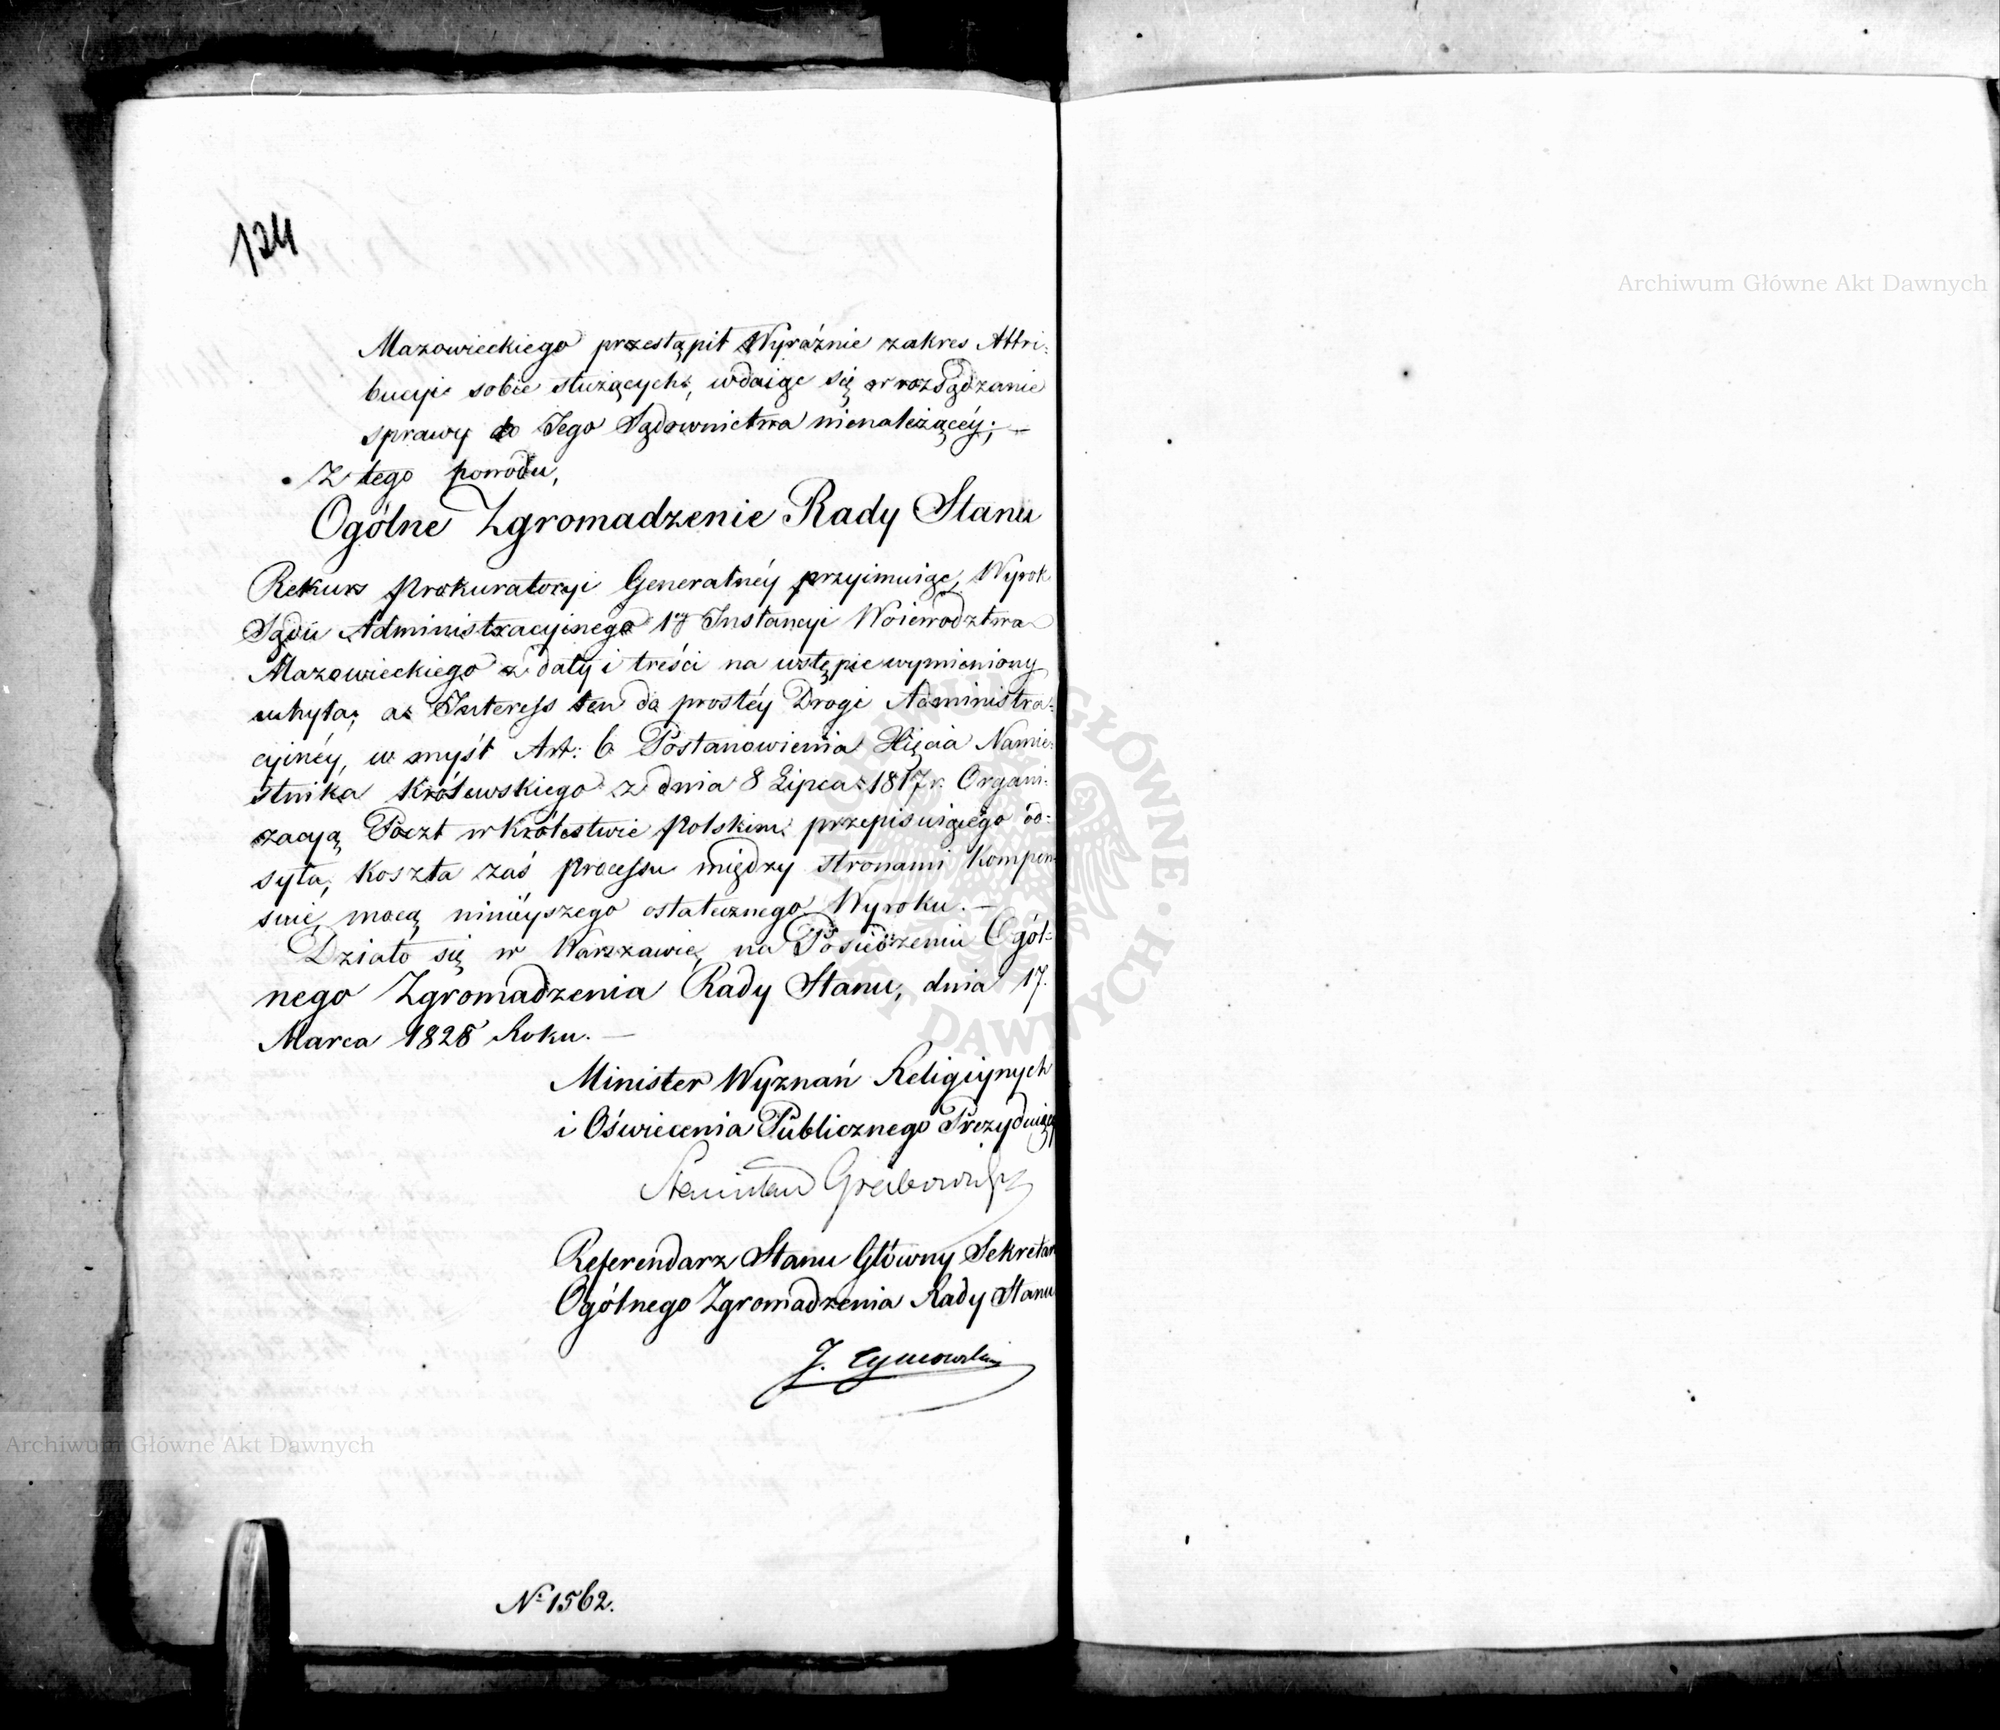 124
Mazowieckiego przestąpił Wyraźnie zakres Attri-
bucyi sobie służących, wdaiąc się w rozsądzanie
sprawy do Jego Sądownictwa nienależącéy; —
Z tego powodu,
Ogólne Zgromadzenie Rady Stanu
Rekurs Prokuratoryi Generalnéy przyimuiąc, Wyrok
Sądu Administracyjnego 1éy Instancyi Woiewodztwa
Mazowieckiego z daty i treści na wstępie wymieniony
uchyla; a Interess ten do prostéy Drogi Administra-
cyinéy, w myśl Art: 6 Postanowienia Xięcia Namie-
stnika Królewskiego z dnia 8 Lipca 1817 r. Organi-
zacyą Poczt w Królestwie Polskim przepisuiącego od-
syła, koszta zaś processu między stronami kompen
suie, mocą ninieyszego ostatecznego Wyroku. —
Działo się w Warszawie, na Posiedzeniu Ogól-
nego Zgromadzenia Rady Stanu, dnia 17.
Marca 1828 Roku. —
Minister Wyznań Religiynych
i Oświecenia Publicznego Prezyduiący
Stanisław Grabowski
Referendarz Stanu Główny Sekretarz
Ogólnego Zgromadzenia Rady Stanu
J. Tymowski
№ 1562.
Archiwum Główne Akt Dawnych
Archiwum Główne Akt Dawnych
ARCHIWUM GŁÓWNE AKT DAWNYCH